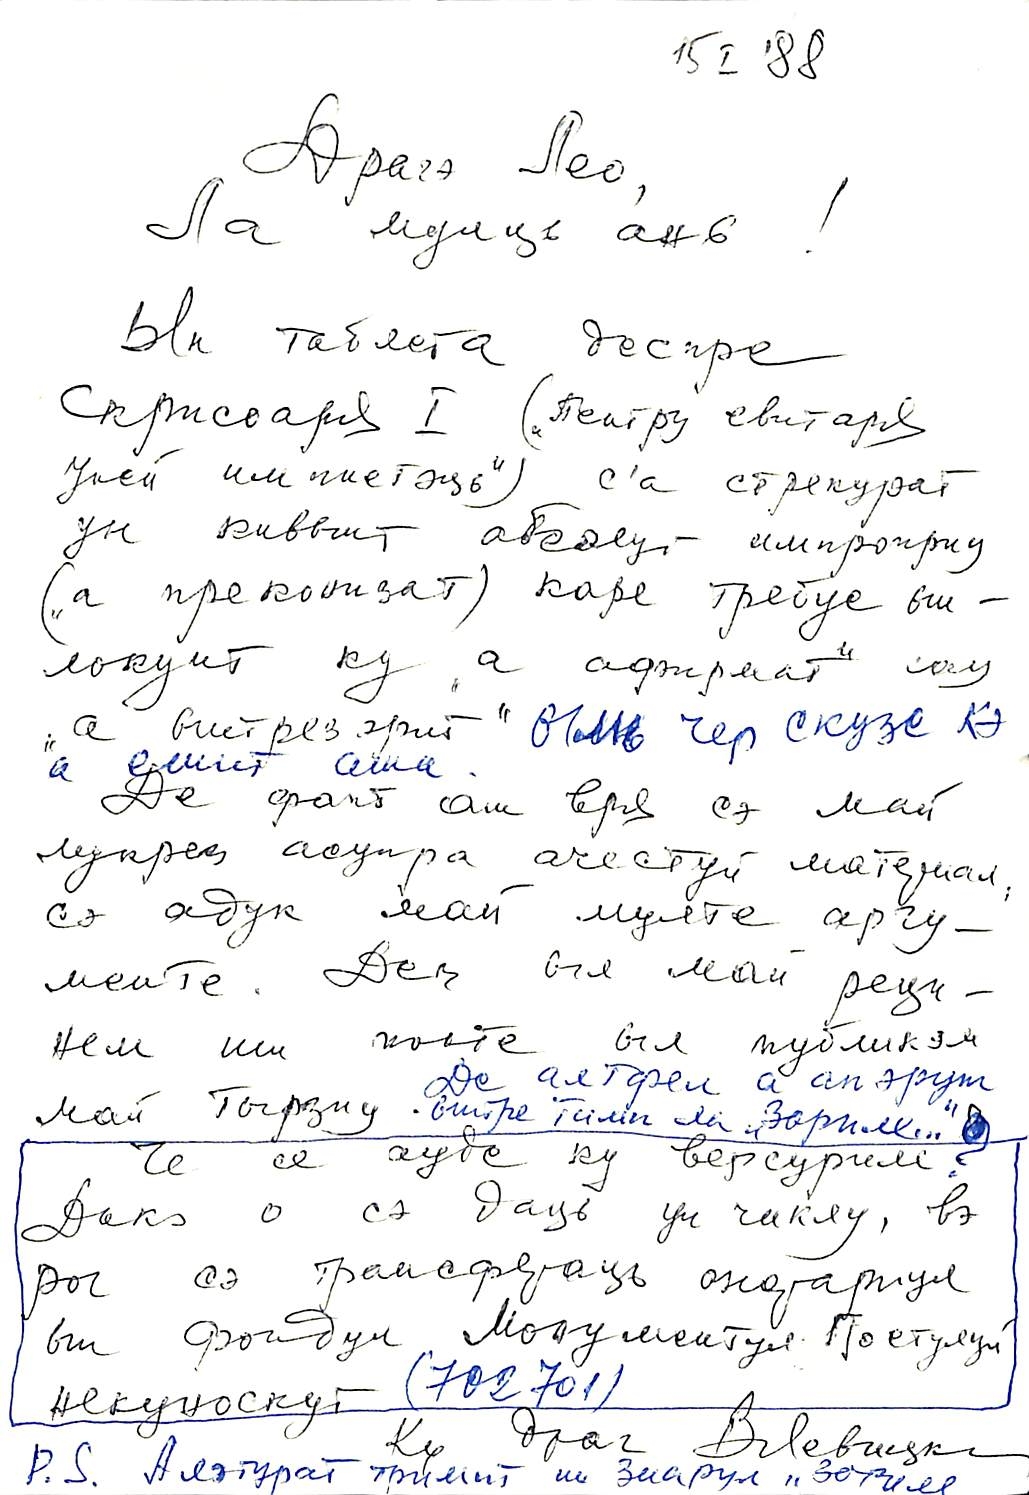 15 I '88
Драгэ Лео,
Ла мулць ань!
Ын таблета деспре
Скрисоаря I („Пентру евитаря
уней импиетэць") с'а стрекурат
ун кувынт абсолут импроприу
(„а преконизат) каре требуе ын-
локуит ку „а афирмат" сау
„а ынтрезэрит" Ымь чер скузе кэ
а ешит аша.
Де фапт аш вря сэ май
лукрез асупра ачестуй материал,
сэ адук май мулте аргу-
менте. Дец ыл май рецу-
нем ши поате ыл публикэм
май тырзиу. Де алтфел а апэрут
ынтре тимп ла „Зориле..."
Че се ауде ку версуриле?
Дакэ о сэ даць ун чиклу, вэ
рог сэ трансфераць онорариул
ын фондул Монументул Поетулуй
некуноскут (702701)
Ку драг ВлЛевицки
P.S. Алэтурат тримит ши зиарул „Зориле